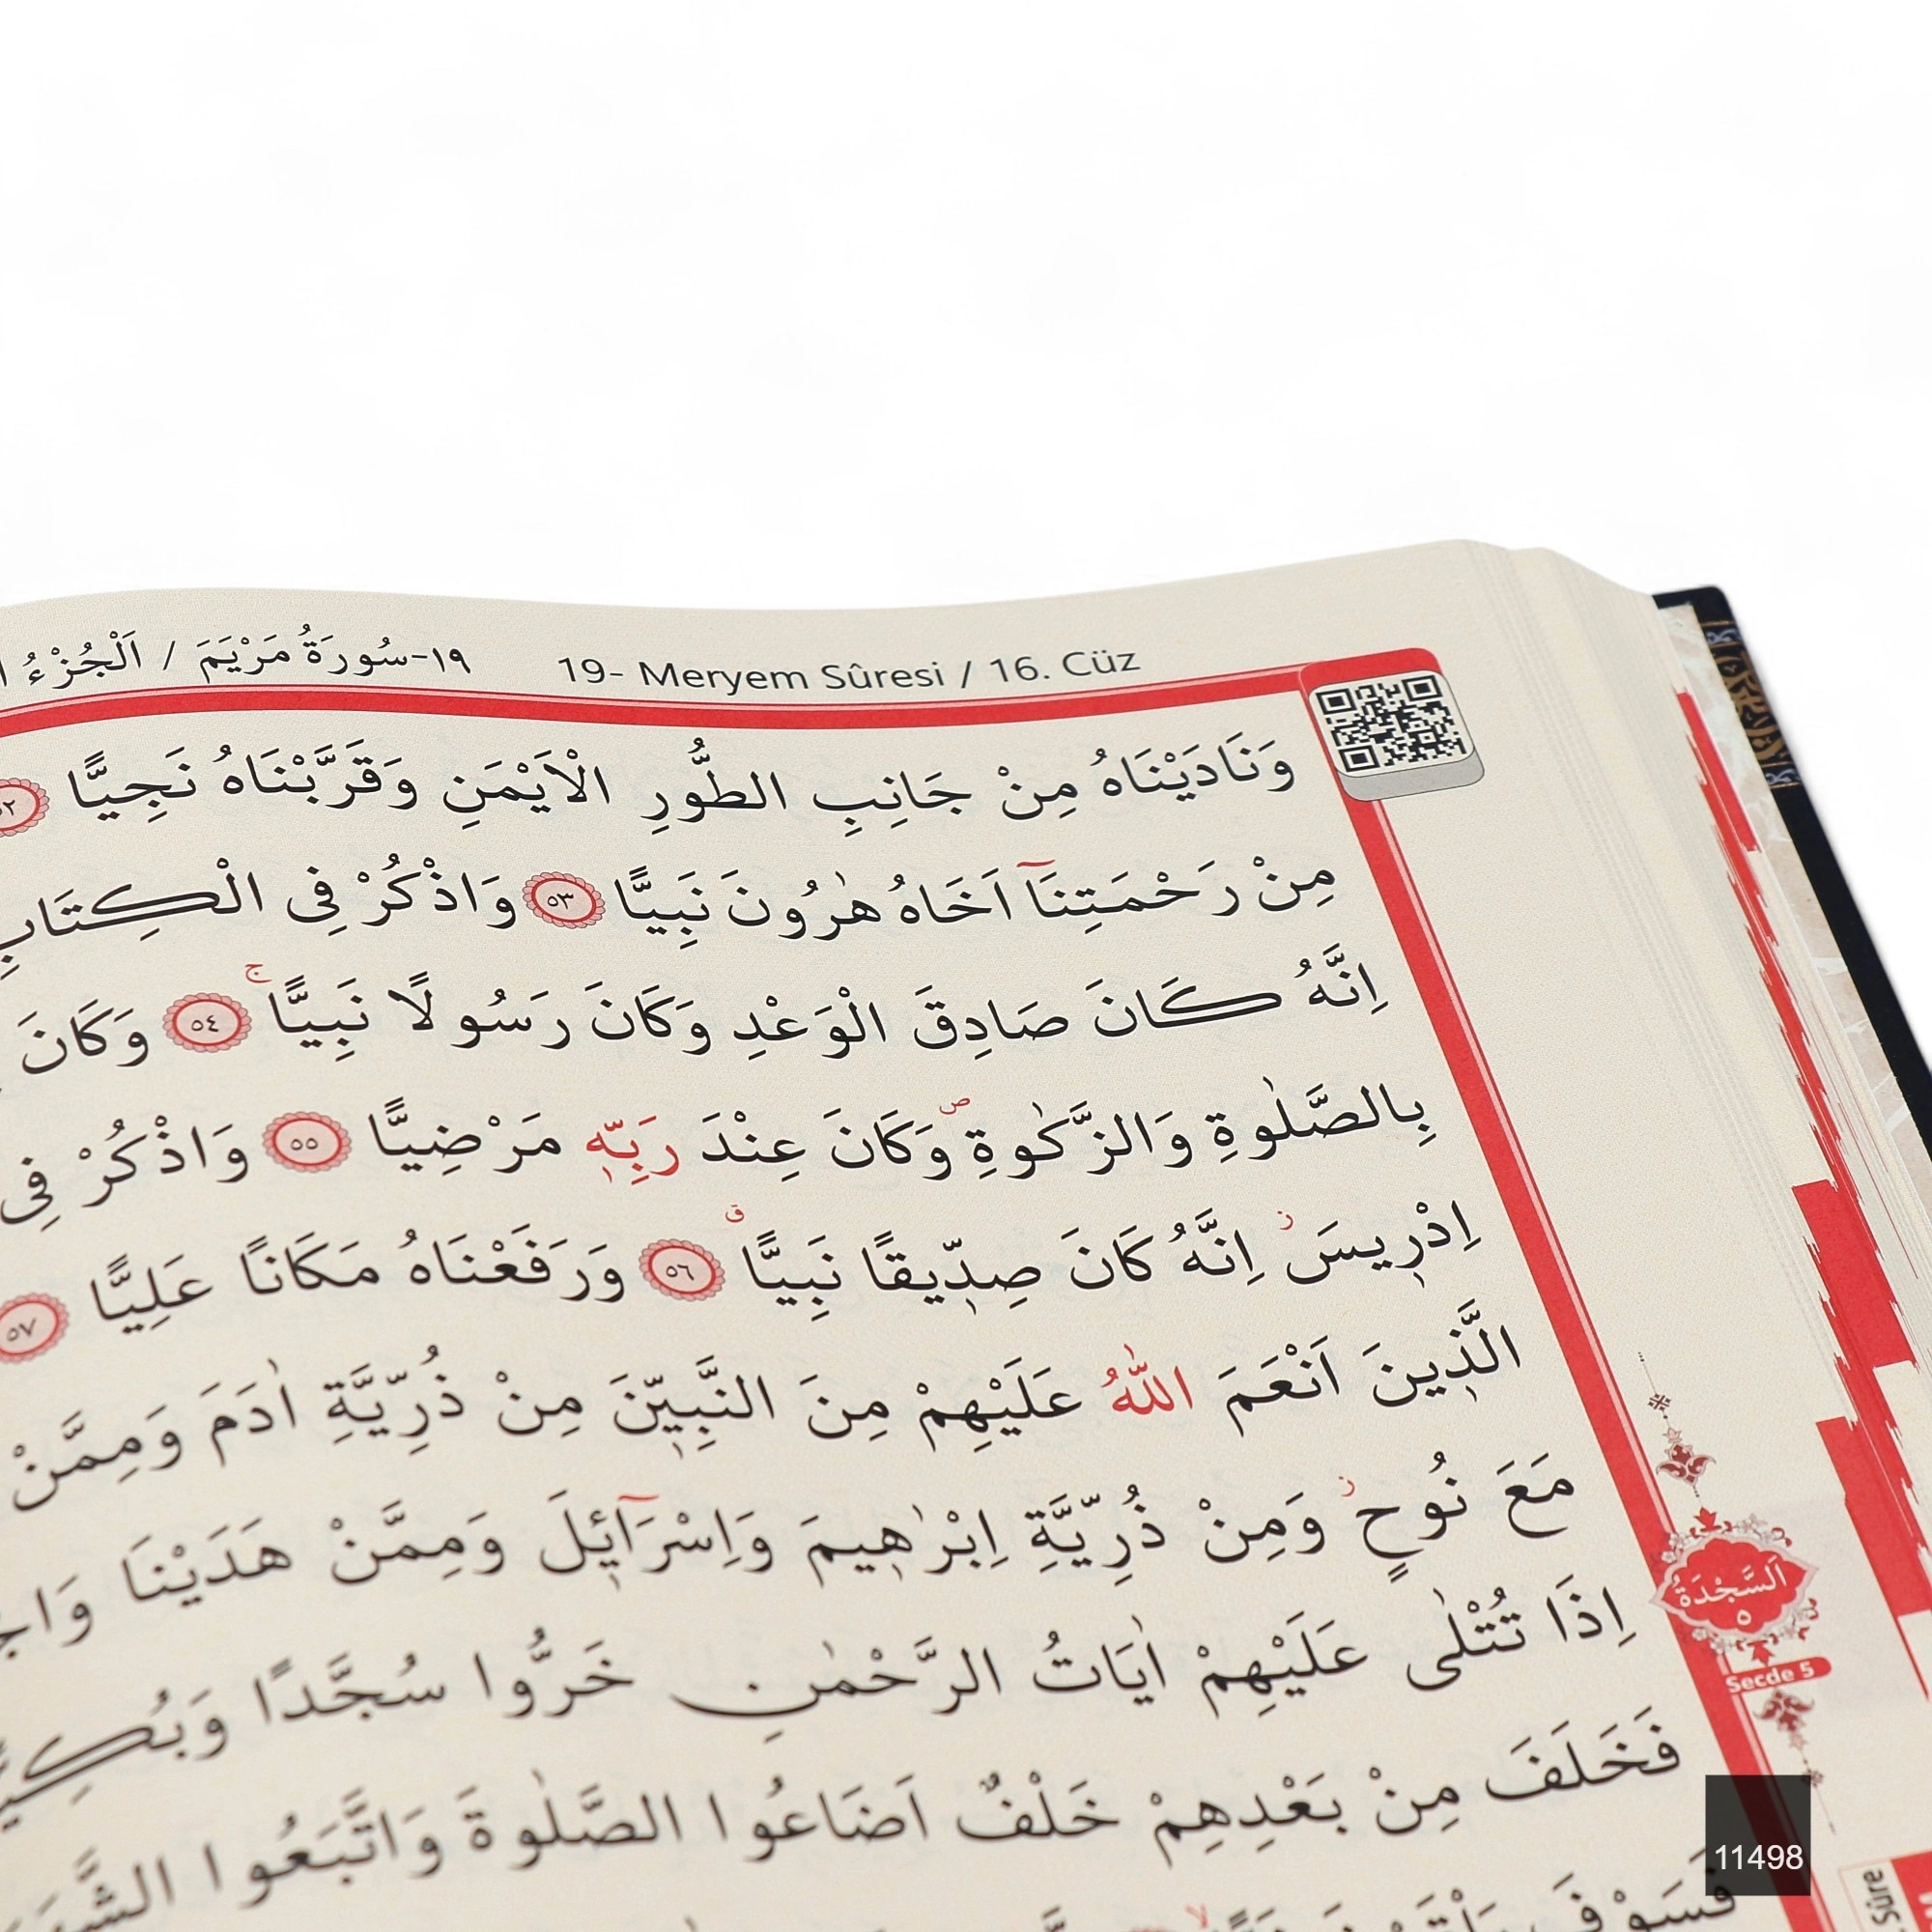 ١٩-سُورَةُ مَرْيَمَ / اَلْجُزْءُ
19- Meryem Sûresi / 16. Cüz
وَنَادَيْنَاهُ مِنْ جَانِبِ الطُّورِ الْاَيْمَنِ وَقَرَّبْنَاهُ نَجِيًّا ٥٢
مِنْ رَحْمَتِنَآ اَخَاهُ هٰرُونَ نَبِيًّا ٥٣ وَاذْكُرْ فِى الْكِتَابِ
اِنَّهُ كَانَ صَادِقَ الْوَعْدِ وَكَانَ رَسُولًا نَبِيًّا ۚ ٥٤ وَكَانَ
بِالصَّلٰوةِ وَالزَّكٰوةِ ۖ وَكَانَ عِنْدَ رَبِّهٖ مَرْضِيًّا ٥٥ وَاذْكُرْ فِى
اِدْرٖيسَ ز اِنَّهُ كَانَ صِدّٖيقًا نَبِيًّا ق ٥٦ وَرَفَعْنَاهُ مَكَانًا عَلِيًّا ٥٧
الَّذٖينَ اَنْعَمَ اللّٰهُ عَلَيْهِمْ مِنَ النَّبِيّٖنَ مِنْ ذُرِّيَّةِ اٰدَمَ وَمِمَّنْ
مَعَ نُوحٍ ز وَمِنْ ذُرِّيَّةِ اِبْرٰهٖيمَ وَاِسْرَآئٖلَ وَمِمَّنْ هَدَيْنَا
اِذَا تُتْلٰى عَلَيْهِمْ اٰيَاتُ الرَّحْمٰنِ خَرُّوا سُجَّدًا
اَلسَّجْدَةُ
٥
Secde 5
فَخَلَفَ مِنْ بَعْدِهِمْ خَلْفٌ اَضَاعُوا الصَّلٰوةَ وَاتَّبَعُوا
فَسَوْفَ
Sûre
11498